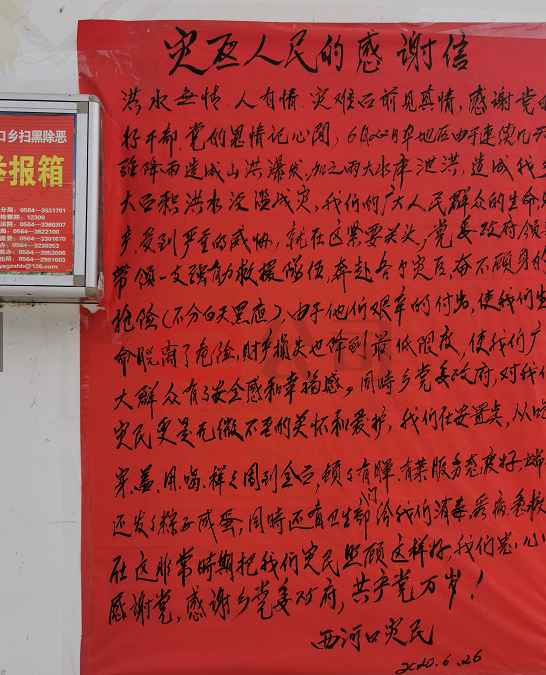 灾区人民的感谢信
洪水无情、人有情、灾难面前见真情，感谢党的
好干部、党的恩情记心间，6月22日本地区由于连续几天
强降雨造成山洪爆发，加之两大水库泄洪，造成我乡
大面积洪水泛滥成灾，我们的广大人民群众的生命
受到严重的威协，就在这紧要关头，党委政府领
带领一支强有力救援队伍，奔赴各个灾区，奋不顾身的
抢险（不分白天黑夜）、由于他们艰辛的付出，使我们生
命脱离了危险，财产损失也降到最低限度，使我们广
大群众有了安全感和幸福感，同时乡党委政府，对我们
灾民更是无微不至的关怀和爱护，我们在安置点，从吃
穿、盖、用、喝、样样周到全面，顿顿有晕、有菜服务态度好，端
还发了粽子咸蛋，同时还有卫生部门给我们消毒、看病、
在这非常时期把我们灾民照顾这样好，我们忠心
感谢党，感谢乡党委政府，共产党万岁！
西河口灾民
2020.6.26
口乡扫黑除恶
举报箱
分局：0564—3931791
检察院：12309
法院：0564—3360307
0564—3622100
监委：0564—3301670
办：0564—3230353
办：0564—3952006
出所：0564—2991003